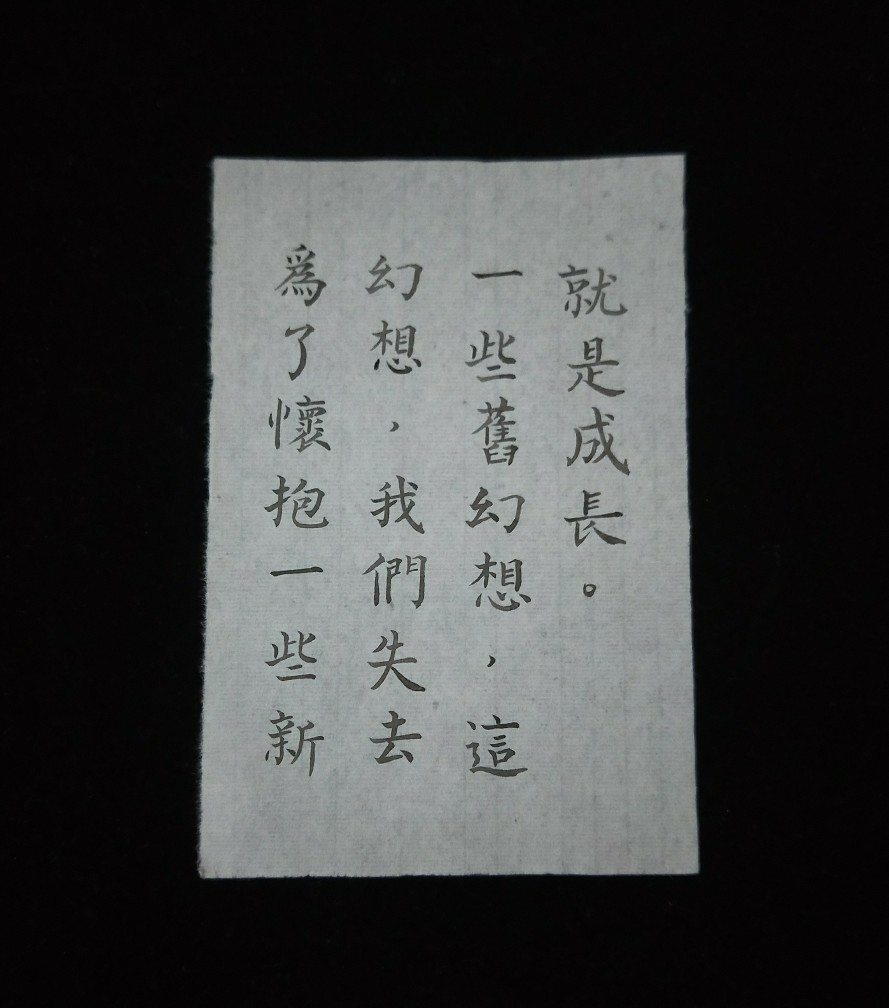 爲了懷抱一些新
幻想，我們失去
一些舊幻想，這
就是成長。